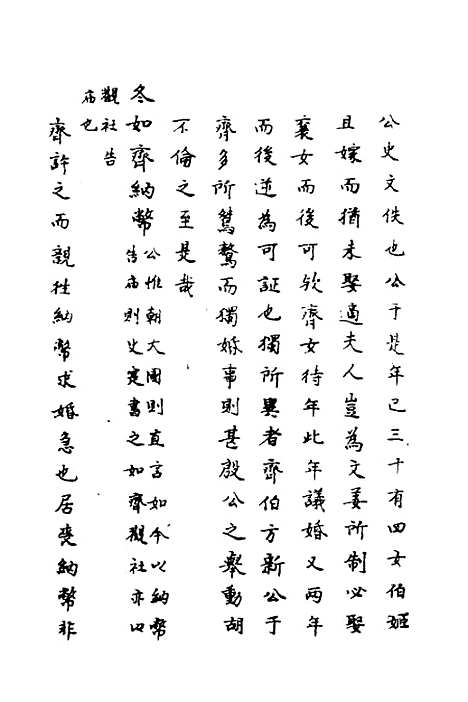 公史文佚也公于是年已三十有四女伯姬
且嫁而猶未娶適夫人豈為文姜所制必娶
襄女而後可欤齊女待年此年議婚又兩年
而後逆為可証也獨所異者齊伯方新公于
齊多所鷙驁而獨婚事則甚殷公之舉動胡
不倫之至是哉
冬如齊納幣公惟朝大國則直言如今以納幣
告廟則史寔書之如齊觀社亦以
觀社告
廟也
齊許之而親徃納幣求婚急也居喪納幣非